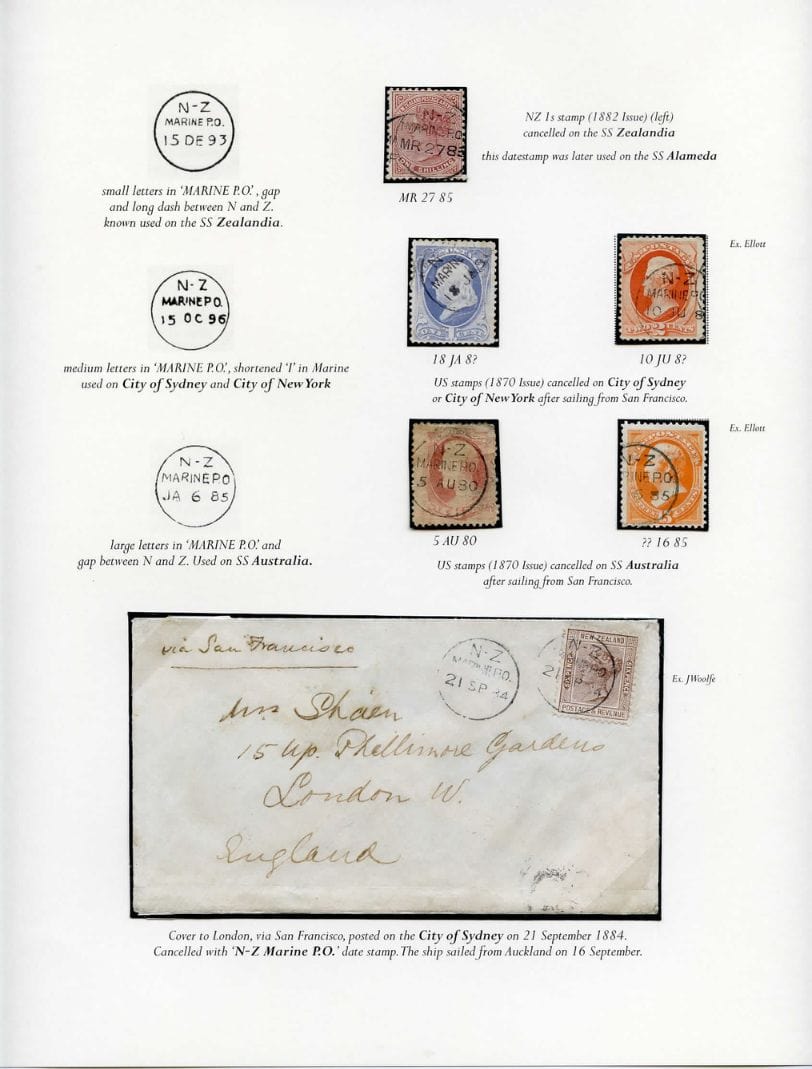 N-Z
MARINE P.O.
15 DE 93
small letters in 'MARINE P.O.', gap
and long dash between N and Z.
known used on the SS Zealandia.
N-Z
MARINE P.O.
MR 27 85
ONE SHILLING
MR 27 85
NZ 1s stamp (1882 Issue) (left)
cancelled on the SS Zealandia
this datestamp was later used on the SS Alameda
N-Z
MARINE P.O.
15 OC 96
medium letters in 'MARINE P.O.', shortened 'I' in Marine
used on City of Sydney and City of New York
N-
MARINE
18 JA
18 JA 8?
N-Z
MARINE P.
10 JU 8
10 JU 8?
Ex. Ellott
US stamps (1870 Issue) cancelled on City of Sydney
or City of New York after sailing from San Francisco.
N-Z
MARINE P.O
JA 6 85
large letters in 'MARINE P.O.' and
gap between N and Z. Used on SS Australia.
N-Z
MARINE P.O.
5 AU 80
5 AU 80
-Z
INE P.O.
85
?? 16 85
Ex. Ellott
US stamps (1870 Issue) cancelled on SS Australia
after sailing from San Francisco.
via San Francisco
N-Z
MARINE P.O.
21 SP 84
N-Z
21 SP 84
NEW ZEALAND
POSTAGE & REVENUE
Mrs Shaen
15 Up. Phillimore Gardens
London W.
England
Ex. J Woolfe
Cover to London, via San Francisco, posted on the City of Sydney on 21 September 1884.
Cancelled with 'N-Z Marine P.O.' date stamp. The ship sailed from Auckland on 16 September.